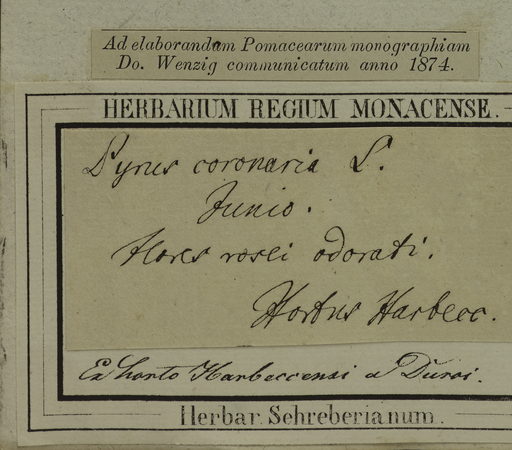 Ad elaborandam Pomacearum monographiam
Do. Wenzig communicatum anno 1874.
HERBARIUM REGIUM MONACENSE.
Pyrus coronaria L.
Junio.
flores rosei odorati.
Hortus Harbecc.
Ex horto Harbeccensi a Duroi.
Herbar. Schreberianum.